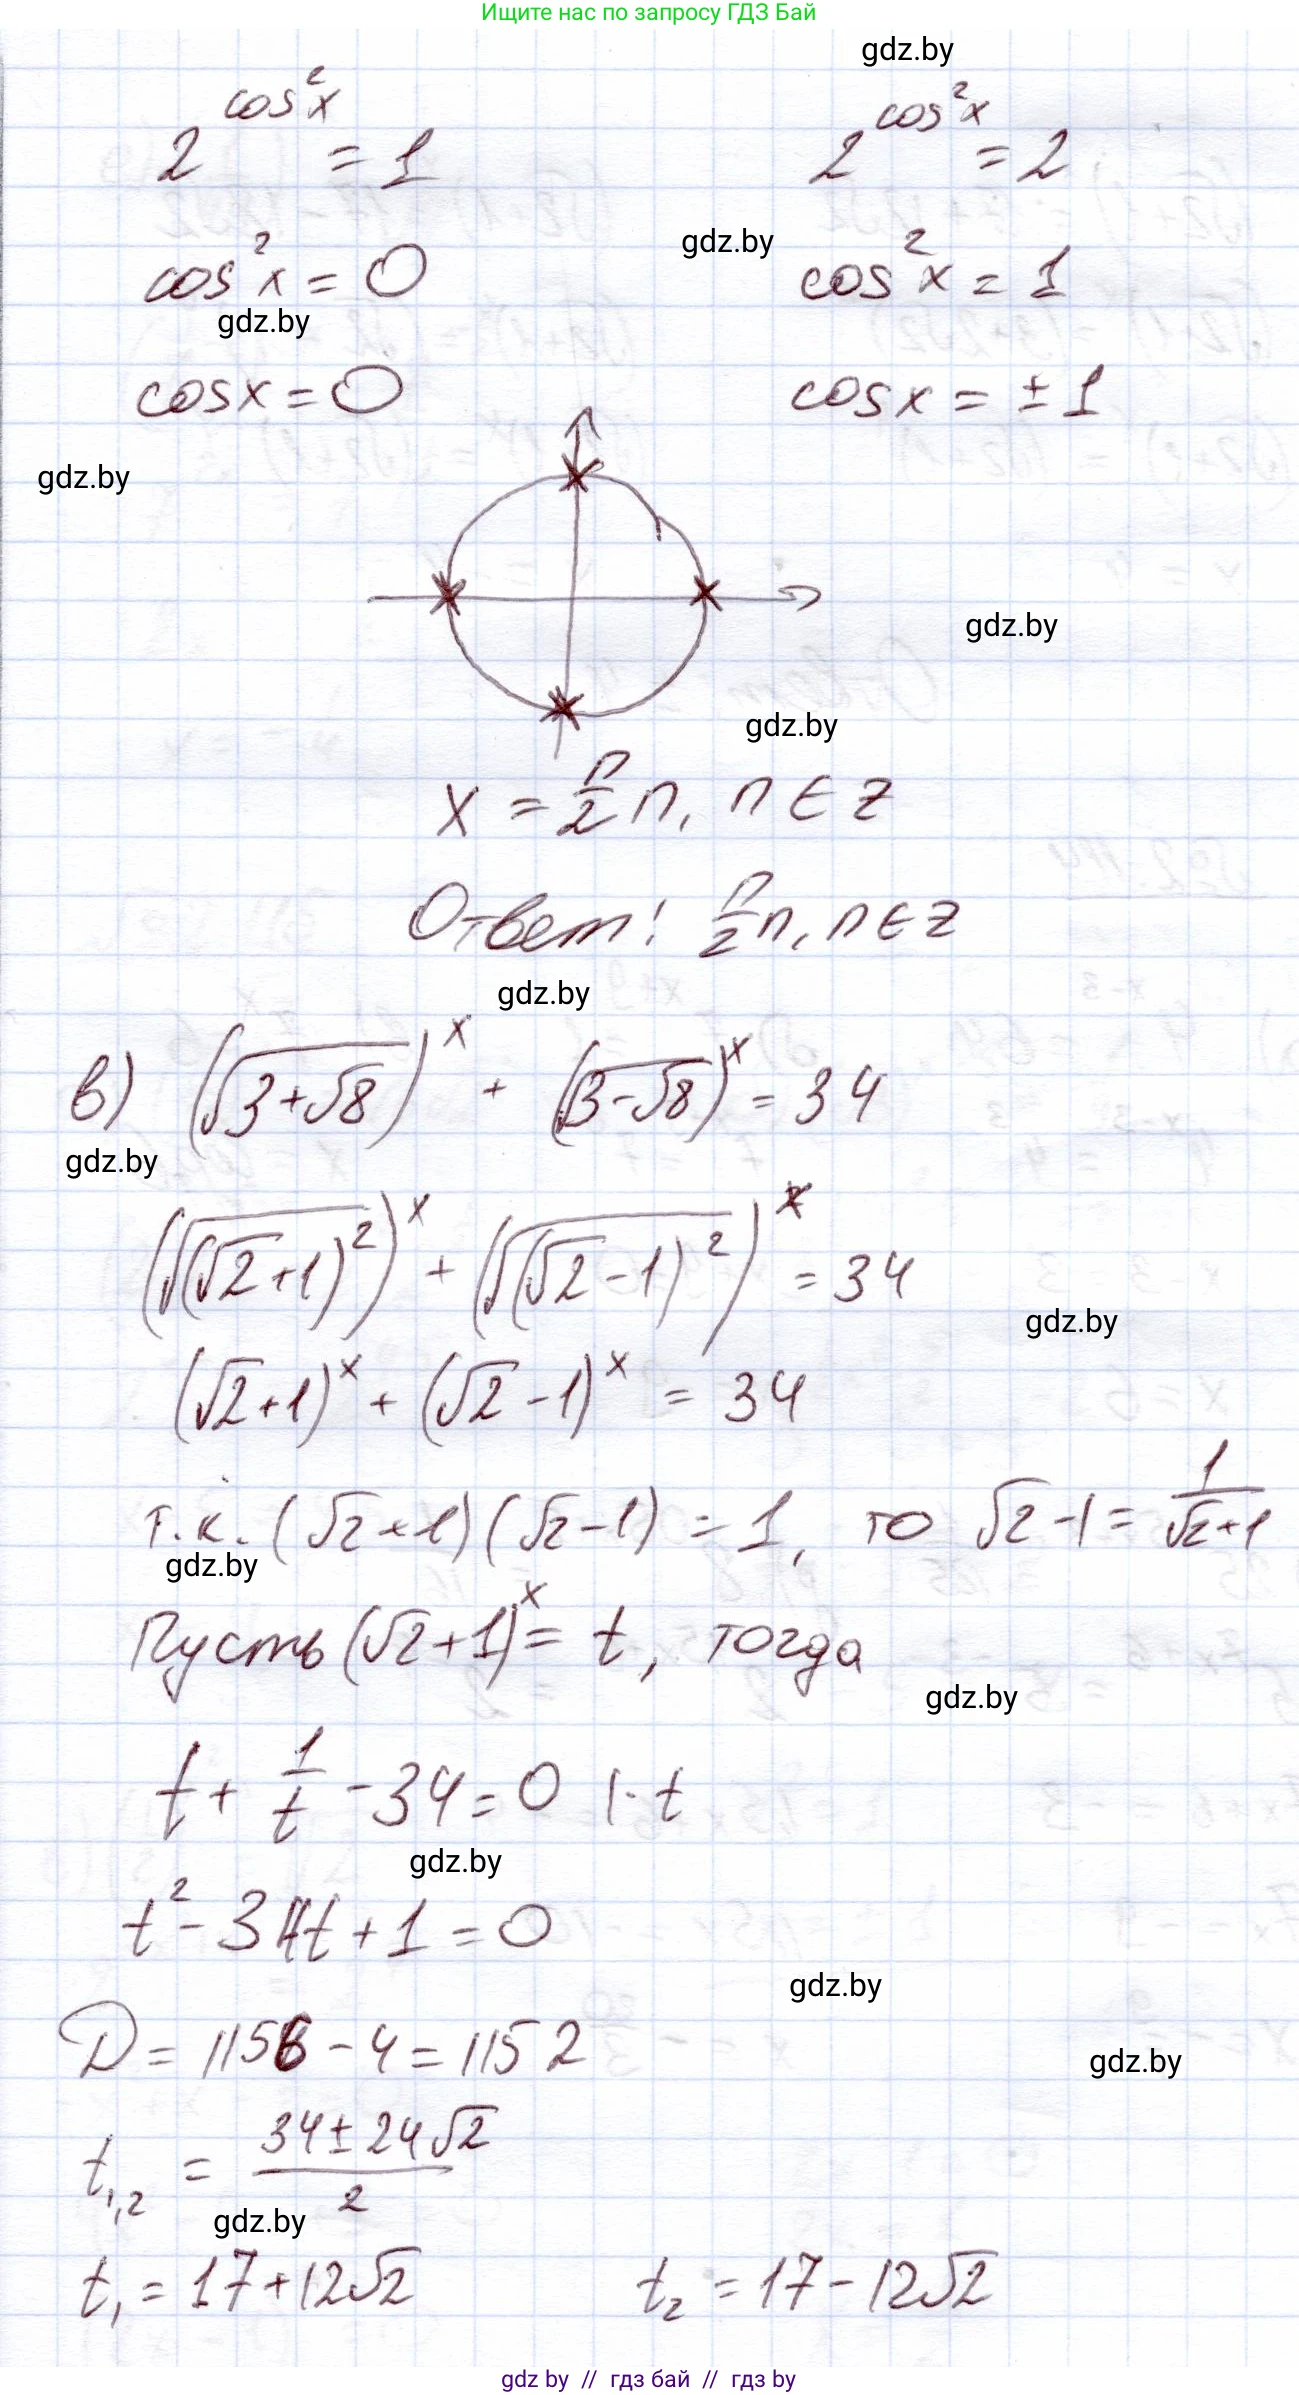 Ищите нас по запросу ГДЗ Бай
gdz.by
2^{cos²x} = 1
2^{cos²x} = 2
gdz.by
cos²x = 0
cos²x = 1
gdz.by
cosx = 0
cosx = ±1
gdz.by
gdz.by
gdz.by
x = π/2 n, n ∈ Z
Ответ: π/2 n, n ∈ Z
gdz.by
в) (√(3+√8))^x + (√(3-√8))^x = 34
gdz.by
(√((√2+1)²))^x + (√((√2-1)²))^x = 34
gdz.by
(√2+1)^x + (√2-1)^x = 34
т.к. (√2+1)(√2-1) = 1, то √2-1 = 1/(√2+1)
gdz.by
Пусть (√2+1)^x = t, тогда
gdz.by
t + 1/t - 34 = 0 |·t
gdz.by
t² - 34t + 1 = 0
gdz.by
D = 1156 - 4 = 1152
gdz.by
t₁,₂ = (34 ± 24√2)/2
gdz.by
t₁ = 17+12√2
t₂ = 17-12√2
gdz by // гдз бай // гдз by